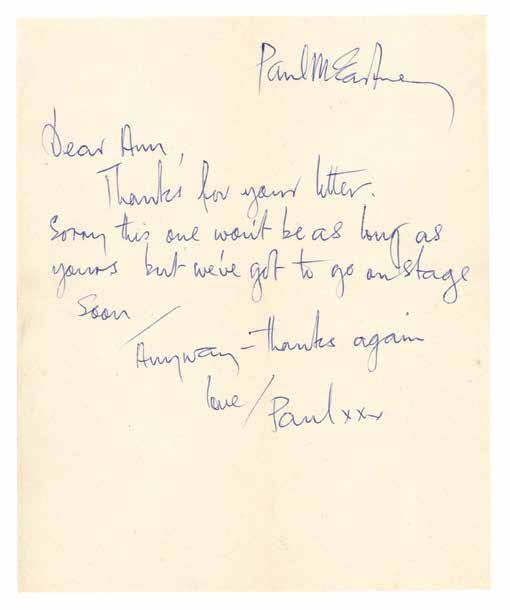 Paul McCartney
Dear Ann,
Thanks for your letter.
Sorry this one won't be as long as
yours but we've got to go on stage
soon /
Anyway - thanks again
love / Paul xxx